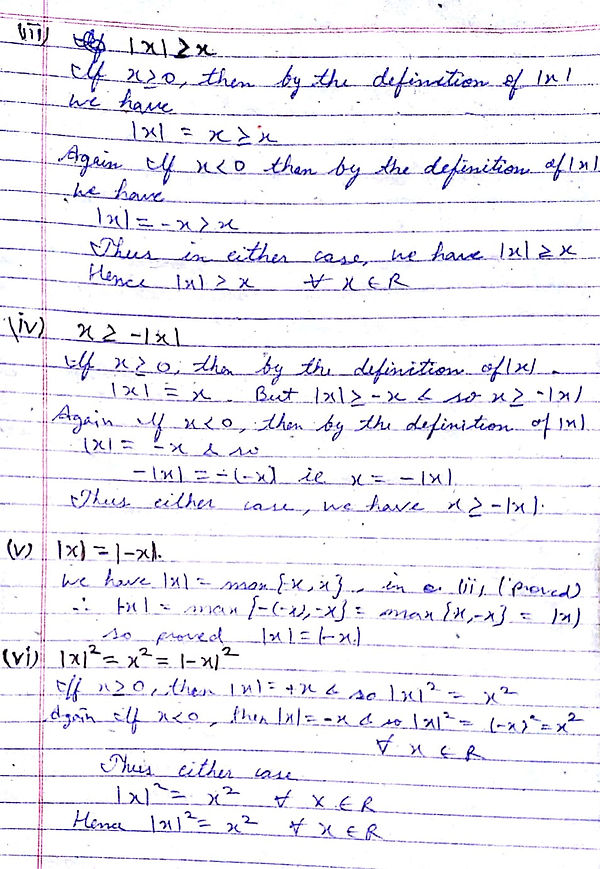 (iii) |x| ≥ x
If x ≥ 0, then by the definition of |x|
we have
|x| = x ≥ x
Again If x < 0 then by the definition of |x|
we have
|x| = -x > x
Thus in either case, we have |x| ≥ x
Hence |x| ≥ x ∀ x ∈ R
(iv) x ≥ -|x|
If x ≥ 0, then by the definition of |x|.
|x| = x. But |x| ≥ -x & so x ≥ -|x|
Again If x < 0, then by the definition of |x|
|x| = -x & so
-|x| = -(-x) ie x = -|x|
Thus either case, we have x ≥ -|x|.
(v) |x| = |-x|.
we have |x| = max {-x, x}, in (ii) (proved)
∴ |-x| = max {-(-x), -x} = max {x, -x} = |x|
so proved |x| = |-x|
(vi) |x|² = x² = |-x|²
If x ≥ 0, then |x| = +x & so |x|² = x²
Again If x < 0, then |x| = -x & so |x|² = (-x)² = x²
∀ x ∈ R
Thus either case
|x|² = x² ∀ x ∈ R
Hence |x|² = x² ∀ x ∈ R